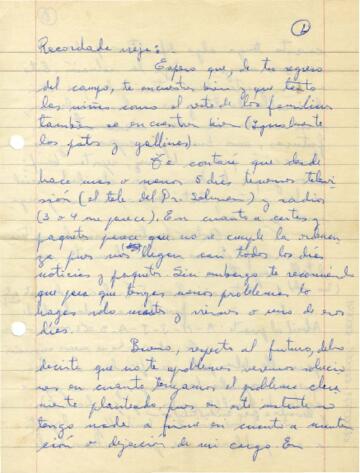 1
Recordada vieja:
Espero que, de tu regreso
del campo, te encuentres bien y que tanto
las niñas como el resto de los familiares
también se encuentren bien (Igualmente
los patos y gallinas)
Te contaré que desde
hace mas o menos 5 días tenemos televi
sión (el tele del Pr. Salman) y radios
(3 o 4 me parece). En cuanto a cartas y
paquetes parece que no se cumple la
pues nos llegan casi todos los días
noticias y paquetes. Sin embargo te recomiendo
que para que tengas menos problemas lo
hagas solo martes y viernes o uno de esos
días.
Bueno, respecto al futuro, debo
decirte que no te apoblemes veremos
en cuanto tengamos el problema clara
mente planteado, pues en este instante no
tengo nada a firme en cuanto a manten
ción o dejación de mi cargo. En